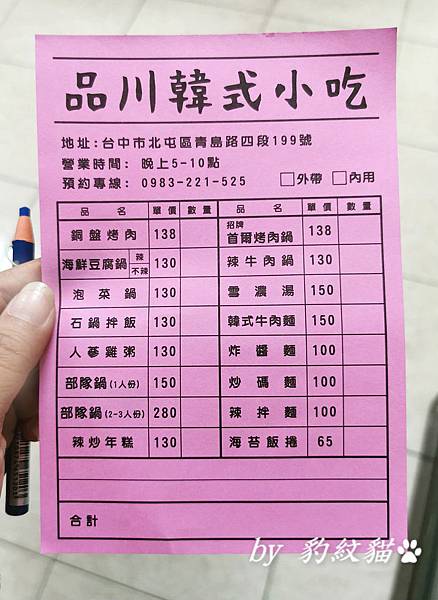 品川韓式小吃
地址:台中市北屯區青島路四段199號
營業時間: 晚上5-10點
預約專線: 0983-221-525 □外帶 □內用
品名 單價 數量 品名 單價 數量
銅盤烤肉 138 招牌 首爾烤肉鍋 138
海鮮豆腐鍋 辣 不辣 130 辣牛肉鍋 130
泡菜鍋 130 雪濃湯 150
石鍋拌飯 130 韓式牛肉麵 150
人蔘雞粥 130 炸醬麵 100
部隊鍋(1人份) 150 炒碼麵 100
部隊鍋(2-3人份) 280 辣拌麵 100
辣炒年糕 130 海苔飯捲 65
合計
by 豹紋貓